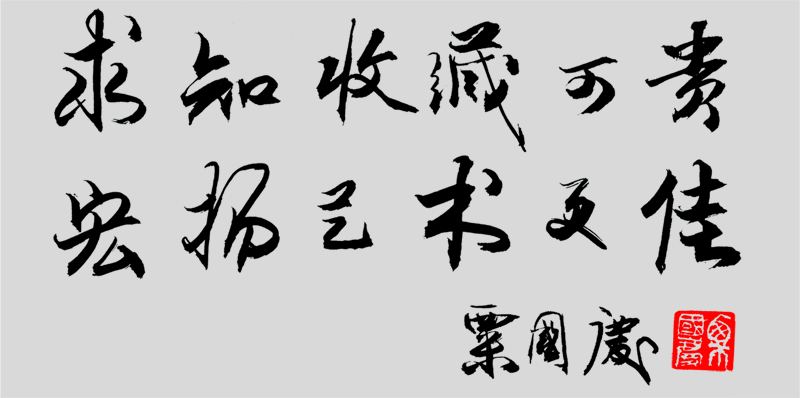 求知收藏可贵
宏扬艺术更佳
粟国庆
粟國慶